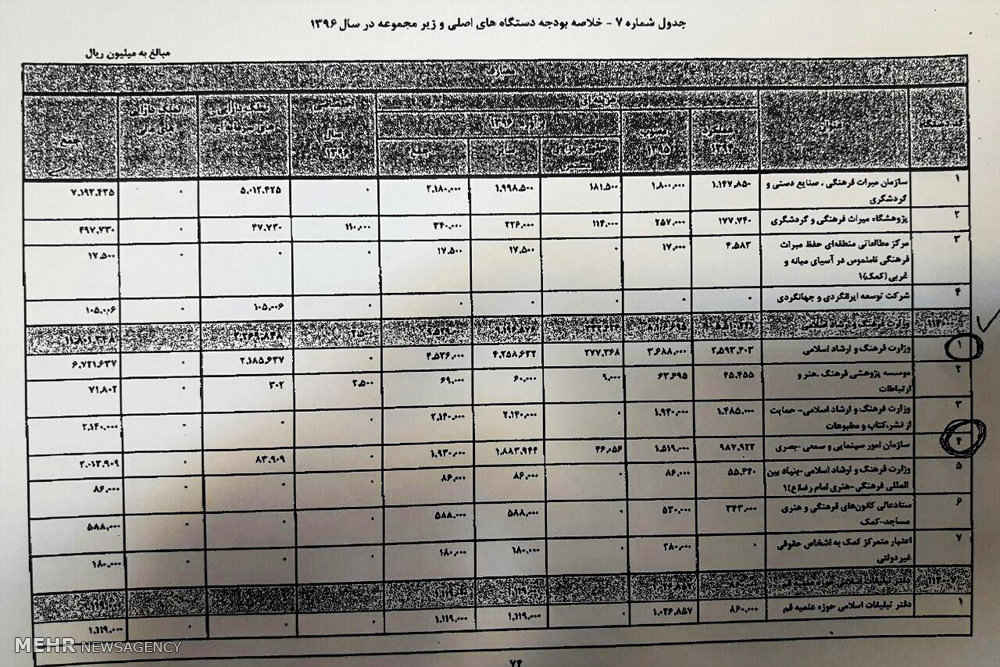 جدول شماره ۷ - خلاصه بودجه دستگاه های اصلی و زیر مجموعه در سال ۱۳۹۶
مبالغ به میلیون ریال
عنوان
جمع
سایر
جمع
سال ۱۳۹۶
۱ سازمان میراث فرهنگی ، صنایع دستی و ۱.۱۴۷.۸۵۰ ۱.۸۰۰.۰۰۰ ۱۸۱.۵۰۰ ۱.۹۹۸.۵۰۰ ۲.۱۸۰.۰۰۰ ۰ ۵.۰۱۲.۴۲۵ ۰ ۷.۱۹۲.۴۲۵
گردشگری
۲ پژوهشگاه میراث فرهنگی و گردشگری ۱۷۷.۷۴۰ ۲۵۷.۰۰۰ ۱۱۴.۰۰۰ ۲۲۶.۰۰۰ ۳۴۰.۰۰۰ ۱۱۰.۰۰۰ ۴۷.۷۳۰ ۰ ۴۹۷.۷۳۰
۳ مرکز مطالعاتی منطقه‌ای حفظ میراث ۴.۵۸۳ ۱۷.۰۰۰ ۰ ۱۷.۵۰۰ ۱۷.۵۰۰ ۰ ۰ ۰ ۱۷.۵۰۰
فرهنگی ناملموس در آسیای میانه و
غربی (کمک)۱
۴ شرکت توسعه ایرانگردی و جهانگردی ۰ ۰ ۰ ۰ ۰ ۰ ۱۰۵.۰۰۶ ۰ ۱۰۵.۰۰۶
وزارت فرهنگ و ارشاد اسلامی
۱ وزارت فرهنگ و ارشاد اسلامی ۲.۵۹۳.۴۰۳ ۳.۶۸۸.۰۰۰ ۲۷۷.۳۶۸ ۴.۲۵۸.۶۳۲ ۴.۵۳۶.۰۰۰ ۰ ۲.۱۸۵.۶۳۷ ۰ ۶.۷۲۱.۶۳۷
۲ موسسه پژوهشی فرهنگ ،هنر و ۴۵.۴۵۵ ۶۳.۶۹۵ ۹.۰۰۰ ۶۰.۰۰۰ ۶۹.۰۰۰ ۲.۵۰۰ ۳۰۲ ۰ ۷۱.۸۰۲
ارتباطات
۳ وزارت فرهنگ و ارشاد اسلامی- حمایت ۱.۴۸۵.۰۰۰ ۱.۹۲۰.۰۰۰ ۰ ۲.۱۴۰.۰۰۰ ۲.۱۴۰.۰۰۰ ۰ ۰ ۰ ۲.۱۴۰.۰۰۰
از نشر،کتاب و مطبوعات
۴ سازمان امور سینمایی و سمعی -بصری ۹۸۷.۹۲۳ ۱.۵۱۹.۰۰۰ ۴۶.۰۵۶ ۱.۸۸۳.۹۴۴ ۱.۹۳۰.۰۰۰ ۰ ۸۳.۹۰۹ ۰ ۲.۰۱۳.۹۰۹
۵ وزارت فرهنگ و ارشاد اسلامی-بنیاد بین ۵۵.۶۴۰ ۸۶.۰۰۰ ۰ ۸۶.۰۰۰ ۸۶.۰۰۰ ۰ ۰ ۰ ۸۶.۰۰۰
المللی فرهنگی-هنری امام رضا(ع)۱
۶ ستادعالی کانون‌های فرهنگی و هنری ۳۴۳.۰۰۰ ۵۳۰.۰۰۰ ۰ ۵۸۸.۰۰۰ ۵۸۸.۰۰۰ ۰ ۰ ۰ ۵۸۸.۰۰۰
مساجد-کمک
۷ اعتبار متمرکز کمک به اشخاص حقوقی ۰ ۲۸۰.۰۰۰ ۰ ۱۸۰.۰۰۰ ۱۸۰.۰۰۰ ۰ ۰ ۰ ۱۸۰.۰۰۰
غیردولتی
۱ دفتر تبلیغات اسلامی حوزه علمیه قم ۸۶۰.۰۰۰ ۱.۰۴۶.۸۵۷ ۰ ۱.۱۱۹.۰۰۰ ۱.۱۱۹.۰۰۰ ۰ ۰ ۰ ۱.۱۱۹.۰۰۰
۷۴
MEHR NEWSAGENCY